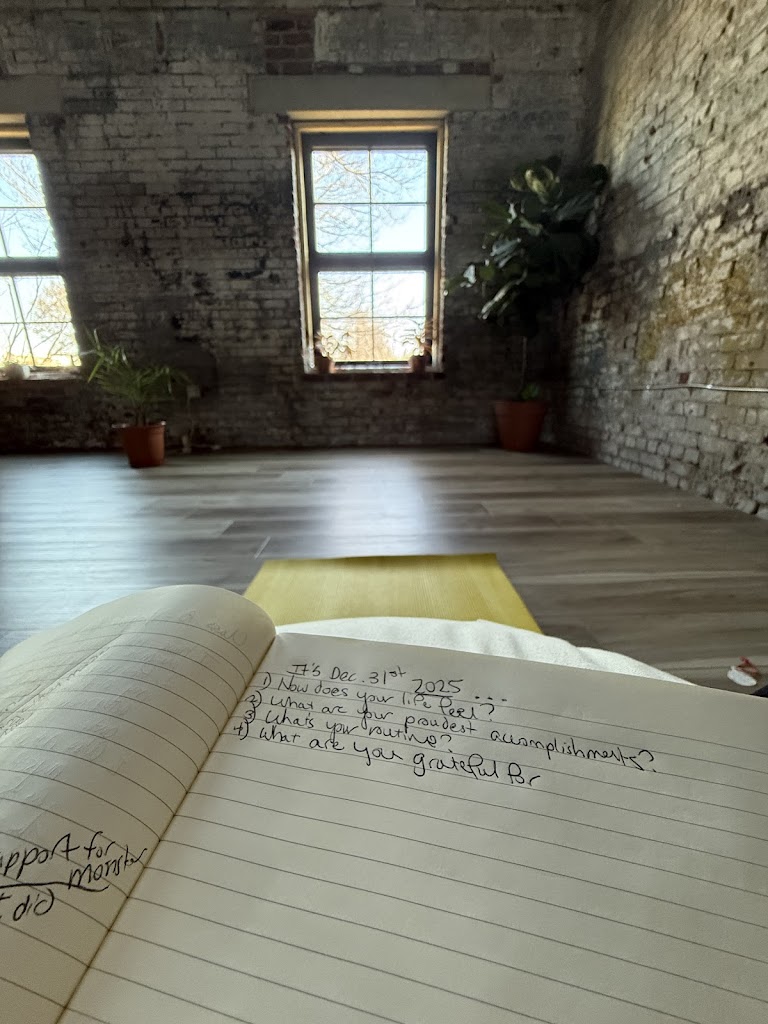 It's Dec. 31st 2025...
1) How does your life feel?
2) What are your proudest accomplishments?
3) What's your routine?
4) What are you grateful for
upport for
monster
t did